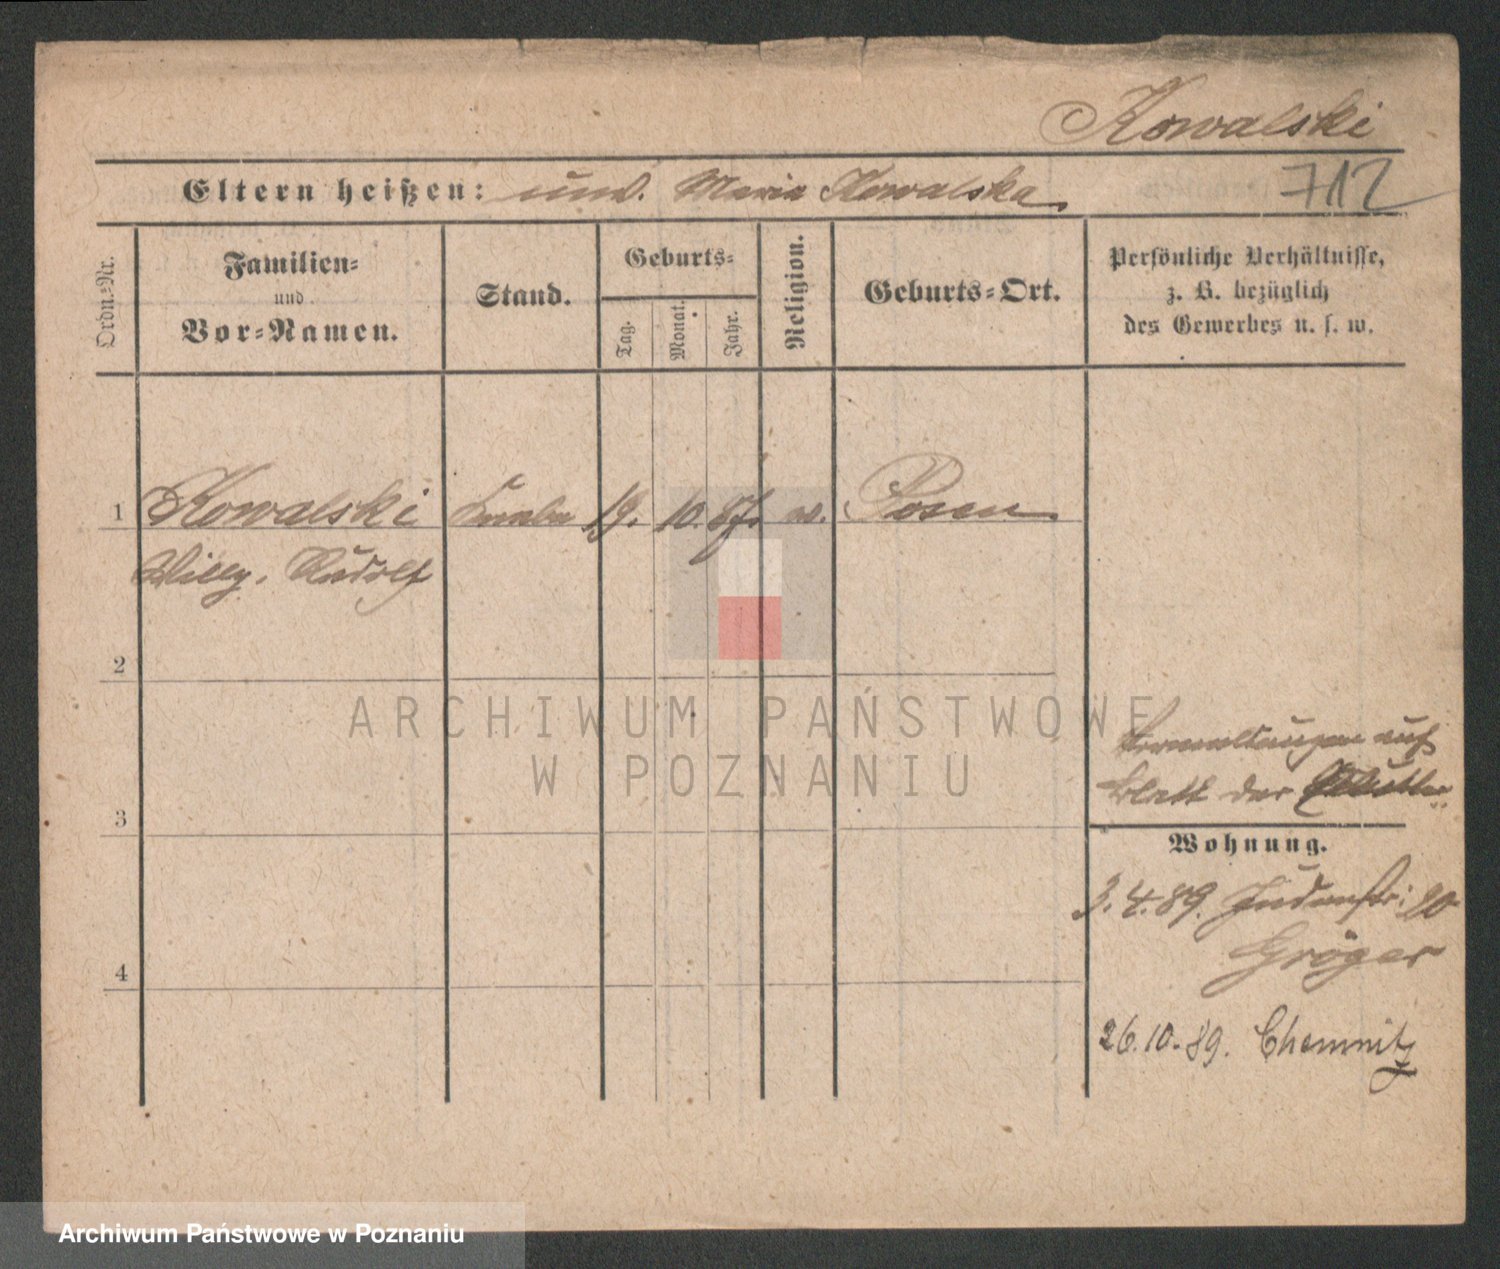 Kowalski
Eltern heißen: unv. Maria Kowalska.
712
Ordn.-Nr.
Familien-
und
Vor-Namen.
Stand.
Geburts-
Tag.
Monat.
Jahr.
Religion.
Geburts-Ort.
Persönliche Verhältnisse,
z. B. bezüglich
des Gewerbes u. s. w.
1 Kowalski 19. 10. 87. Posen
Willy, Rudolf
2
3
4
auf
Blatt der Mutter
Wohnung.
3.4.89. Judenstr: 20
Gröger
26.10.89. Chemnitz
ARCHIWUM PAŃSTWOWE
W POZNANIU
Archiwum Państwowe w Poznaniu